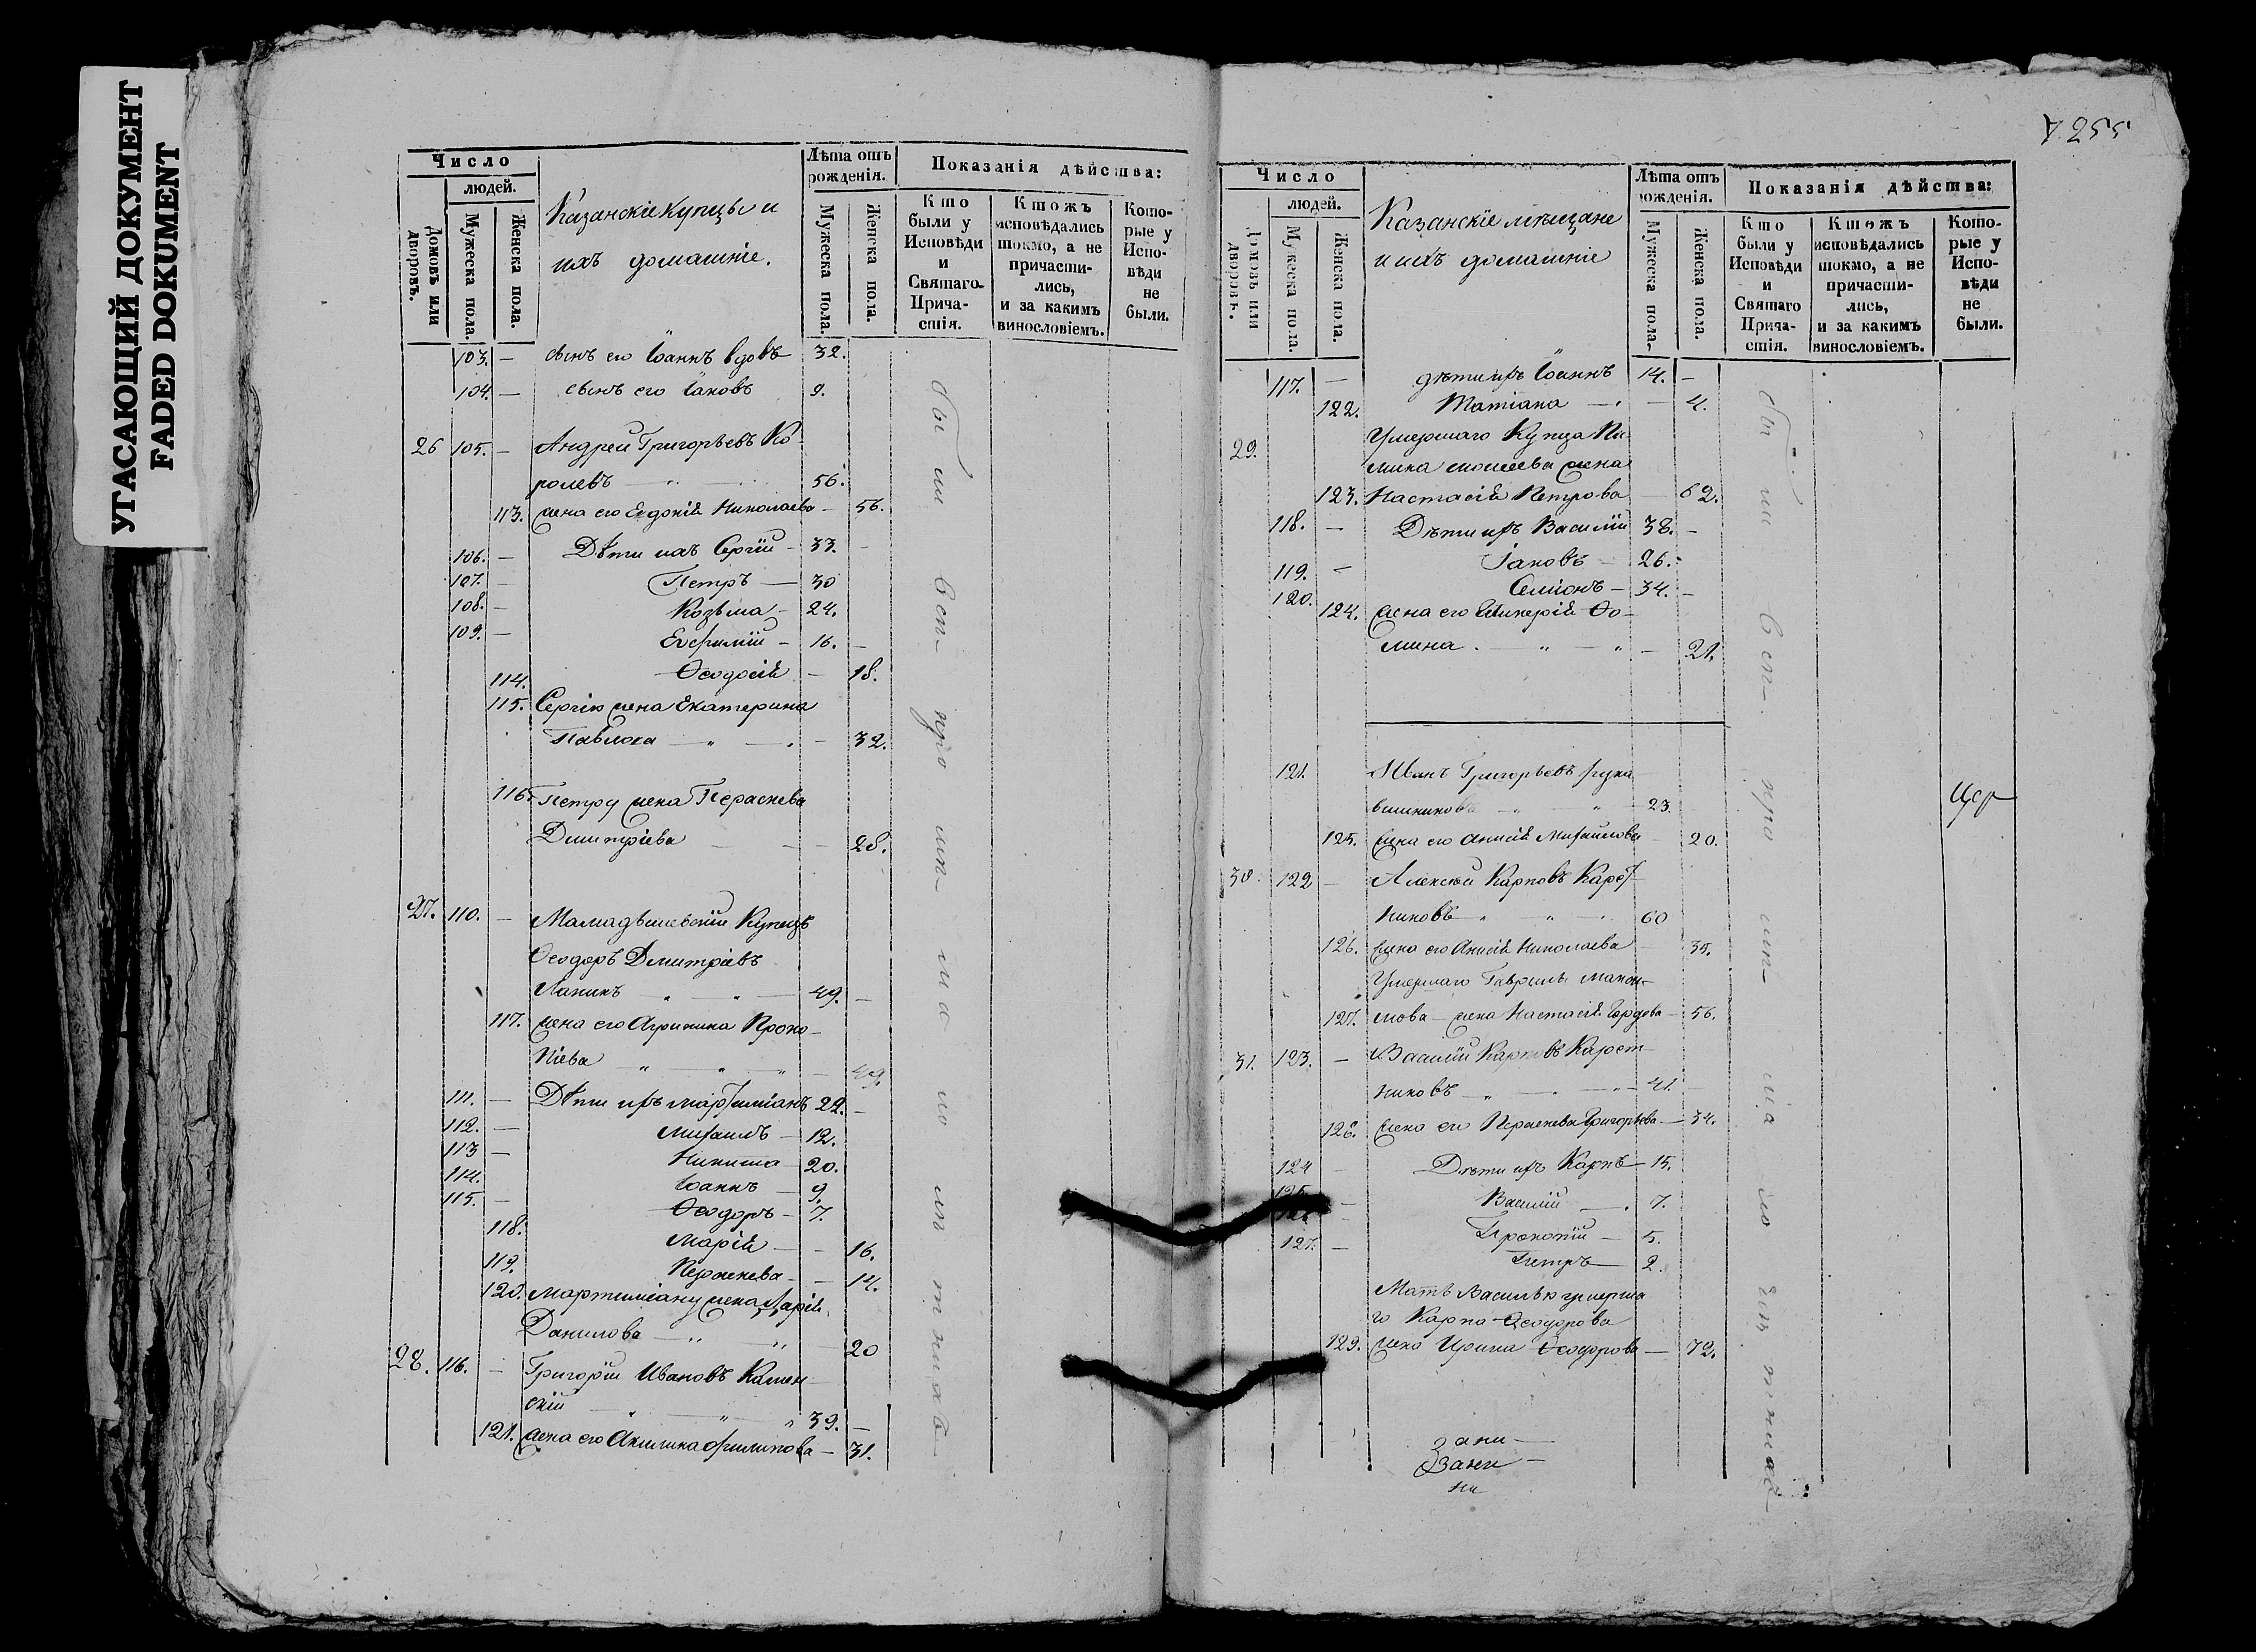 УГАСАЮЩИЙ ДОКУМЕНТ
FADED DOKUMENT
Число
людей.
Домовъ или дворовъ.
Мужеска пола.
Женска пола.
Казанскіе купцы и
ихъ домашніе.
Лѣта отъ рожденія.
Мужеска пола.
Женска пола.
Показанія дѣйства:
Кто были у Исповѣди и Святаго Прича-стія.
Ктожъ исповѣдались токмо, а не причасти-лись, и за какимъ винословіемъ.
Кото-рые у Испо-вѣди не были.
103. — сынъ его Іоаннъ вдовъ 32.
104. — сынъ его Іаковъ 9.
26 105. — Андрей Григорьевъ Ко-
ролевъ — 56.
113. жена его Евдокія Николаева — 56.
106. — Дѣти ихъ Сергій — 33. —
107. — Петръ — 30
108. — Козьма — 24.
109. — Евфимій — 16. —
114. Ѳеодосія — 18.
115. Сергію жена Екатерина
Павлова — „ — 32.
116. Петру жена Параскева
Дмитріева — 28.
27. 110. — Мамадышевскій Купецъ
Ѳеодоръ Дмитріевъ
Лапинъ — „ „ — 49. —
117. жена его Агрипина Проко-
піева „ „ „ — 49.
111. — Дѣти ихъ Мартиміанъ 22. —
112. — Михаилъ — 12.
113 — Никита 20.
114. Іоаннъ — 9.
115. — Ѳеодоръ — 7.
118. Марія — — 16.
119. Параскева — — 14.
120. Мартиміану жена Марія
Данилова — „ „ 20
28. 116. — Григорій Ивановъ Камен-
скій „ „ „ 39. —
121. жена его Акилина Филипова — 31.
255
Число
людей.
Домовъ или дворовъ.
Мужеска пола.
Женска пола.
Казанскіе мѣщане
и ихъ домашніе
Лѣта отъ рожденія.
Мужеска пола.
Женска пола.
Показанія дѣйства:
Кто были у Исповѣди и Святаго Прича-стія.
Ктожъ исповѣдались токмо, а не причасти-лись, и за какимъ винословіемъ.
Кото-рые у Испо-вѣди не были.
117. — дѣти ихъ Іоаннъ 14. —
122. Татіана — — 4.
29. Умершаго Купца Пи-
мина жена
123. Настасія Петрова — 62.
118. — Дѣти ихъ Василій 38. —
119. — Іаковъ — 26. —
120. Симіонъ — 34. —
124. жена его Ѳо-
мина — „ — „ — 21.
121. Иванъ Григорьевъ Рука-
вишниковъ „ „ — 23.
125. жена его Анисія Михайлова 20.
30. 122 — Алексѣй Карповъ Карет-
никовъ „ „ — 60
126. жена его Анисія Николаева — 35.
Умершаго Гаврилы
127. мова — жена Настасія — 56.
31. 123. — Василій Карповъ Карет-
никовъ „ — „ — 41.
128. жена его Параскева Григорьева — 34.
124 — Дѣти ихъ Карпъ — 15.
125. — Василій — 7.
126. — Прокопій — 5.
127. — Петръ — 2.
Мать Василью умерша
го Карпа Ѳеодорова
129. жена Ирина Ѳеодорова — 72.